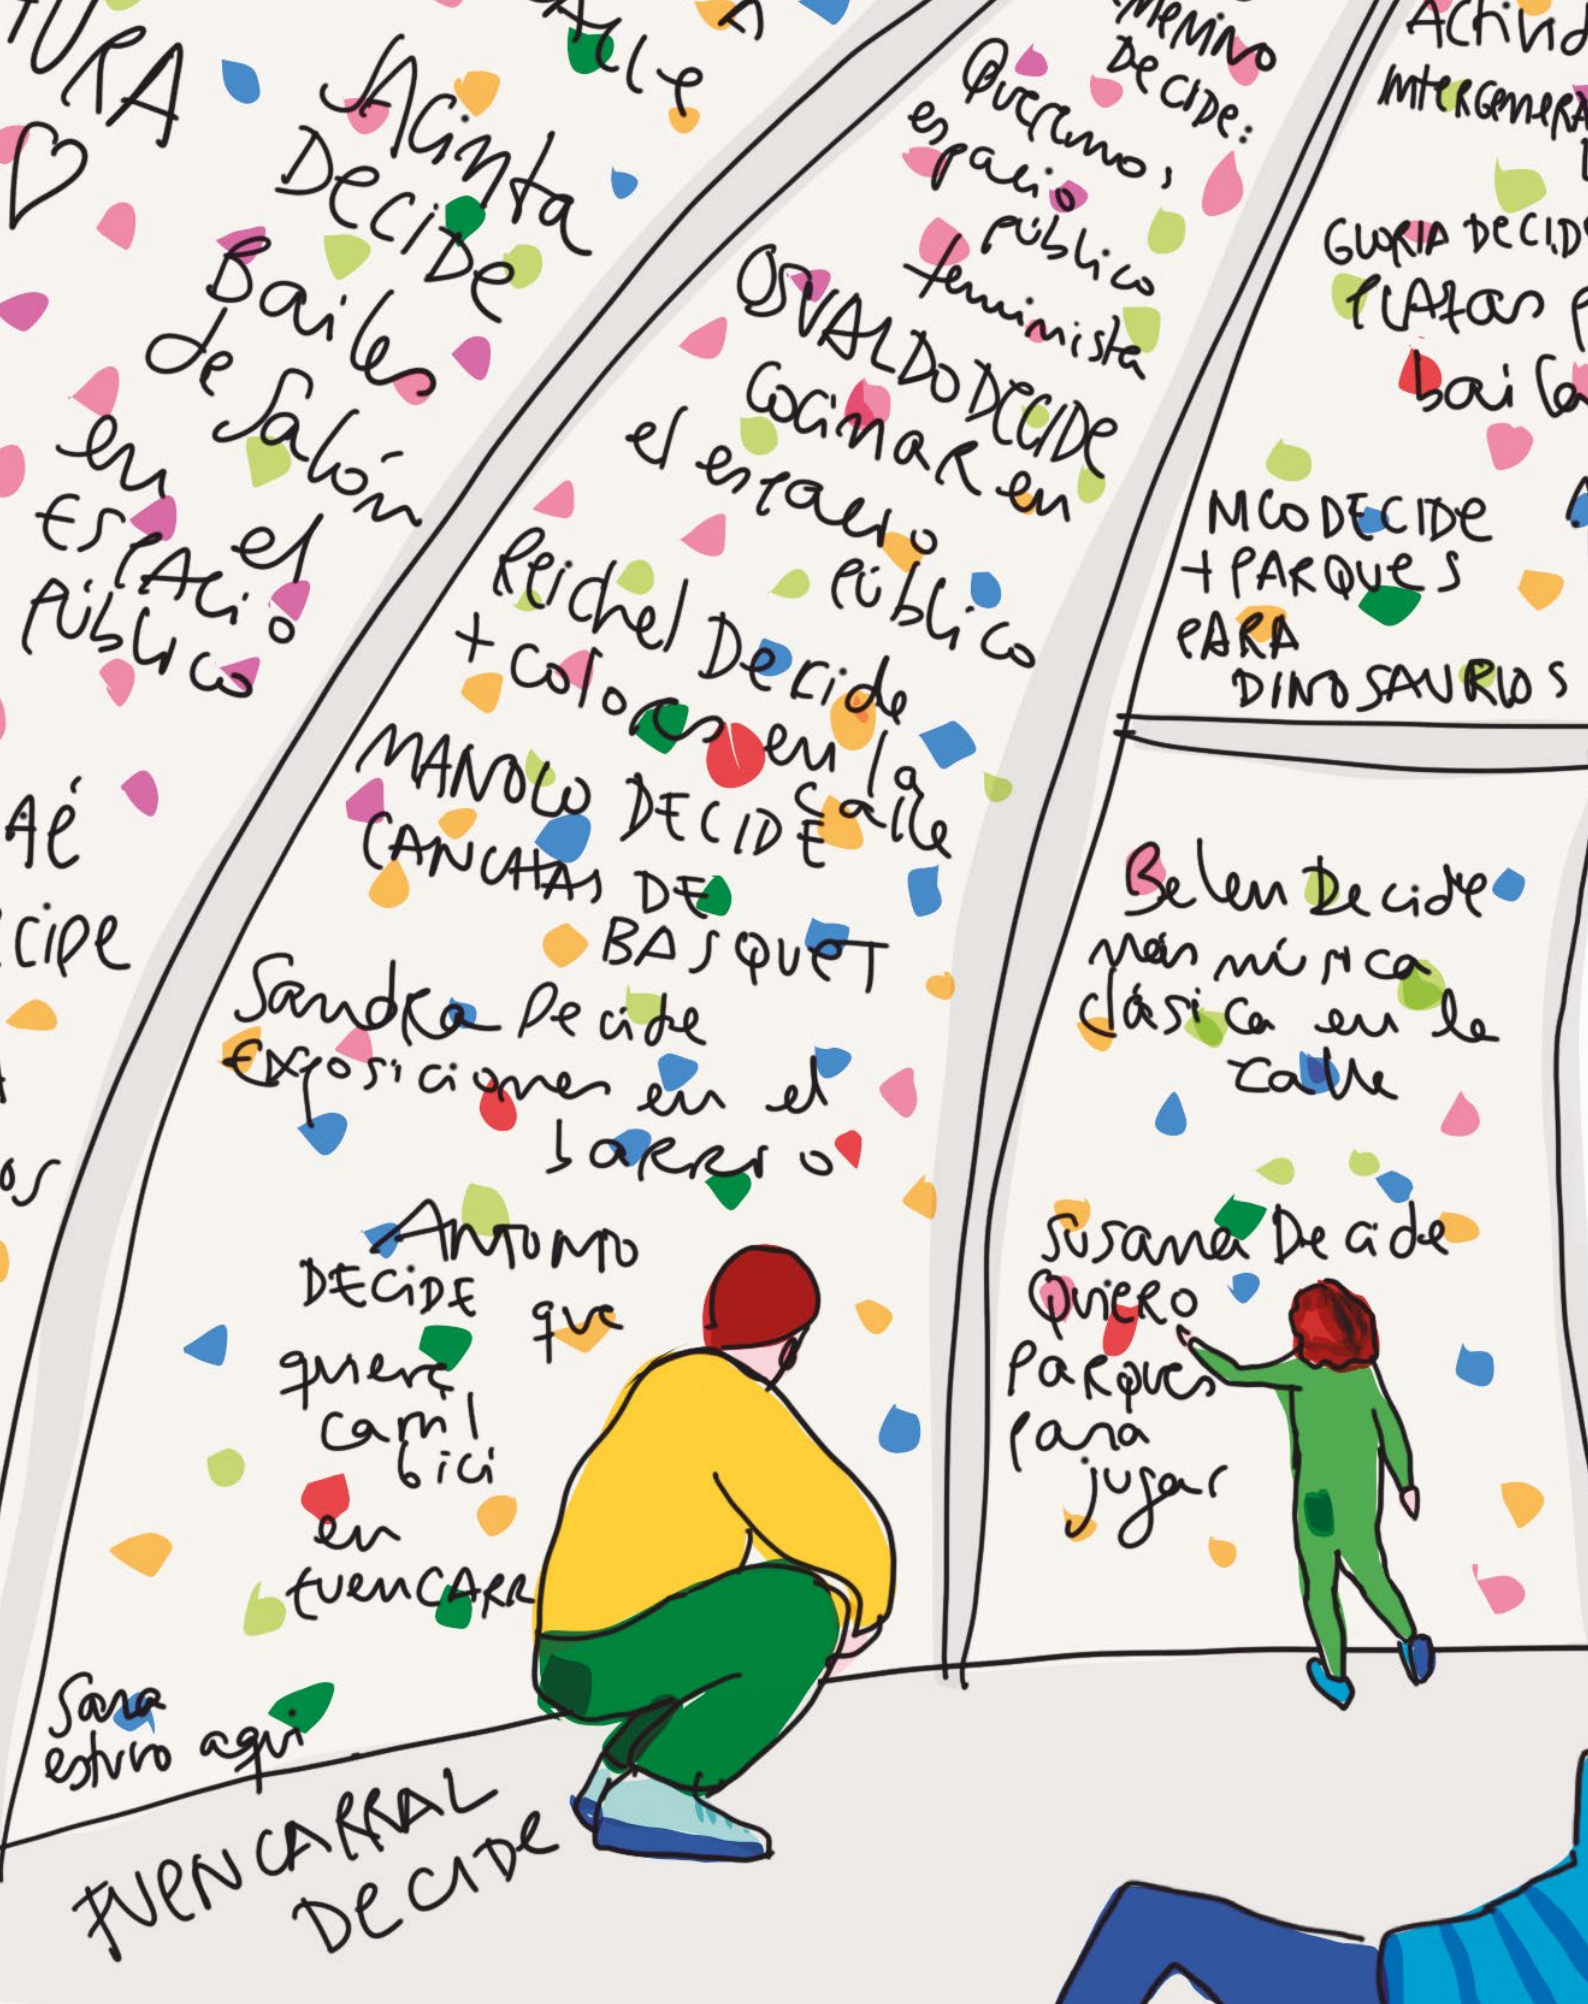 TURA
Jacinta
Decide
Bailes
de Salón
en
el
ESPACIO
PÚBLICO
Decide:
Queremos
espacio
público
feminista
OSVALDO DECIDE
Cocinar en
el espacio
público
Reichel Decide
+ colores en la
calle
MANOLO DECIDE
CANCHAS DE
BASQUET
Sandra Decide
Exposiciones en el
barrio
Antonio
DECIDE que
quiere
carril
bici
en
fuenCARR
Sara
estuvo aquí
FUENCARRAL
DECIDE
GLORIA DECID
bail
NICO DECIDE
+ PARQUES
PARA
DINOSAURIOS
Belen Decide
más música
clásica en la
calle
Susana Decide
Quiero
Parques
para
jugar
CIDE